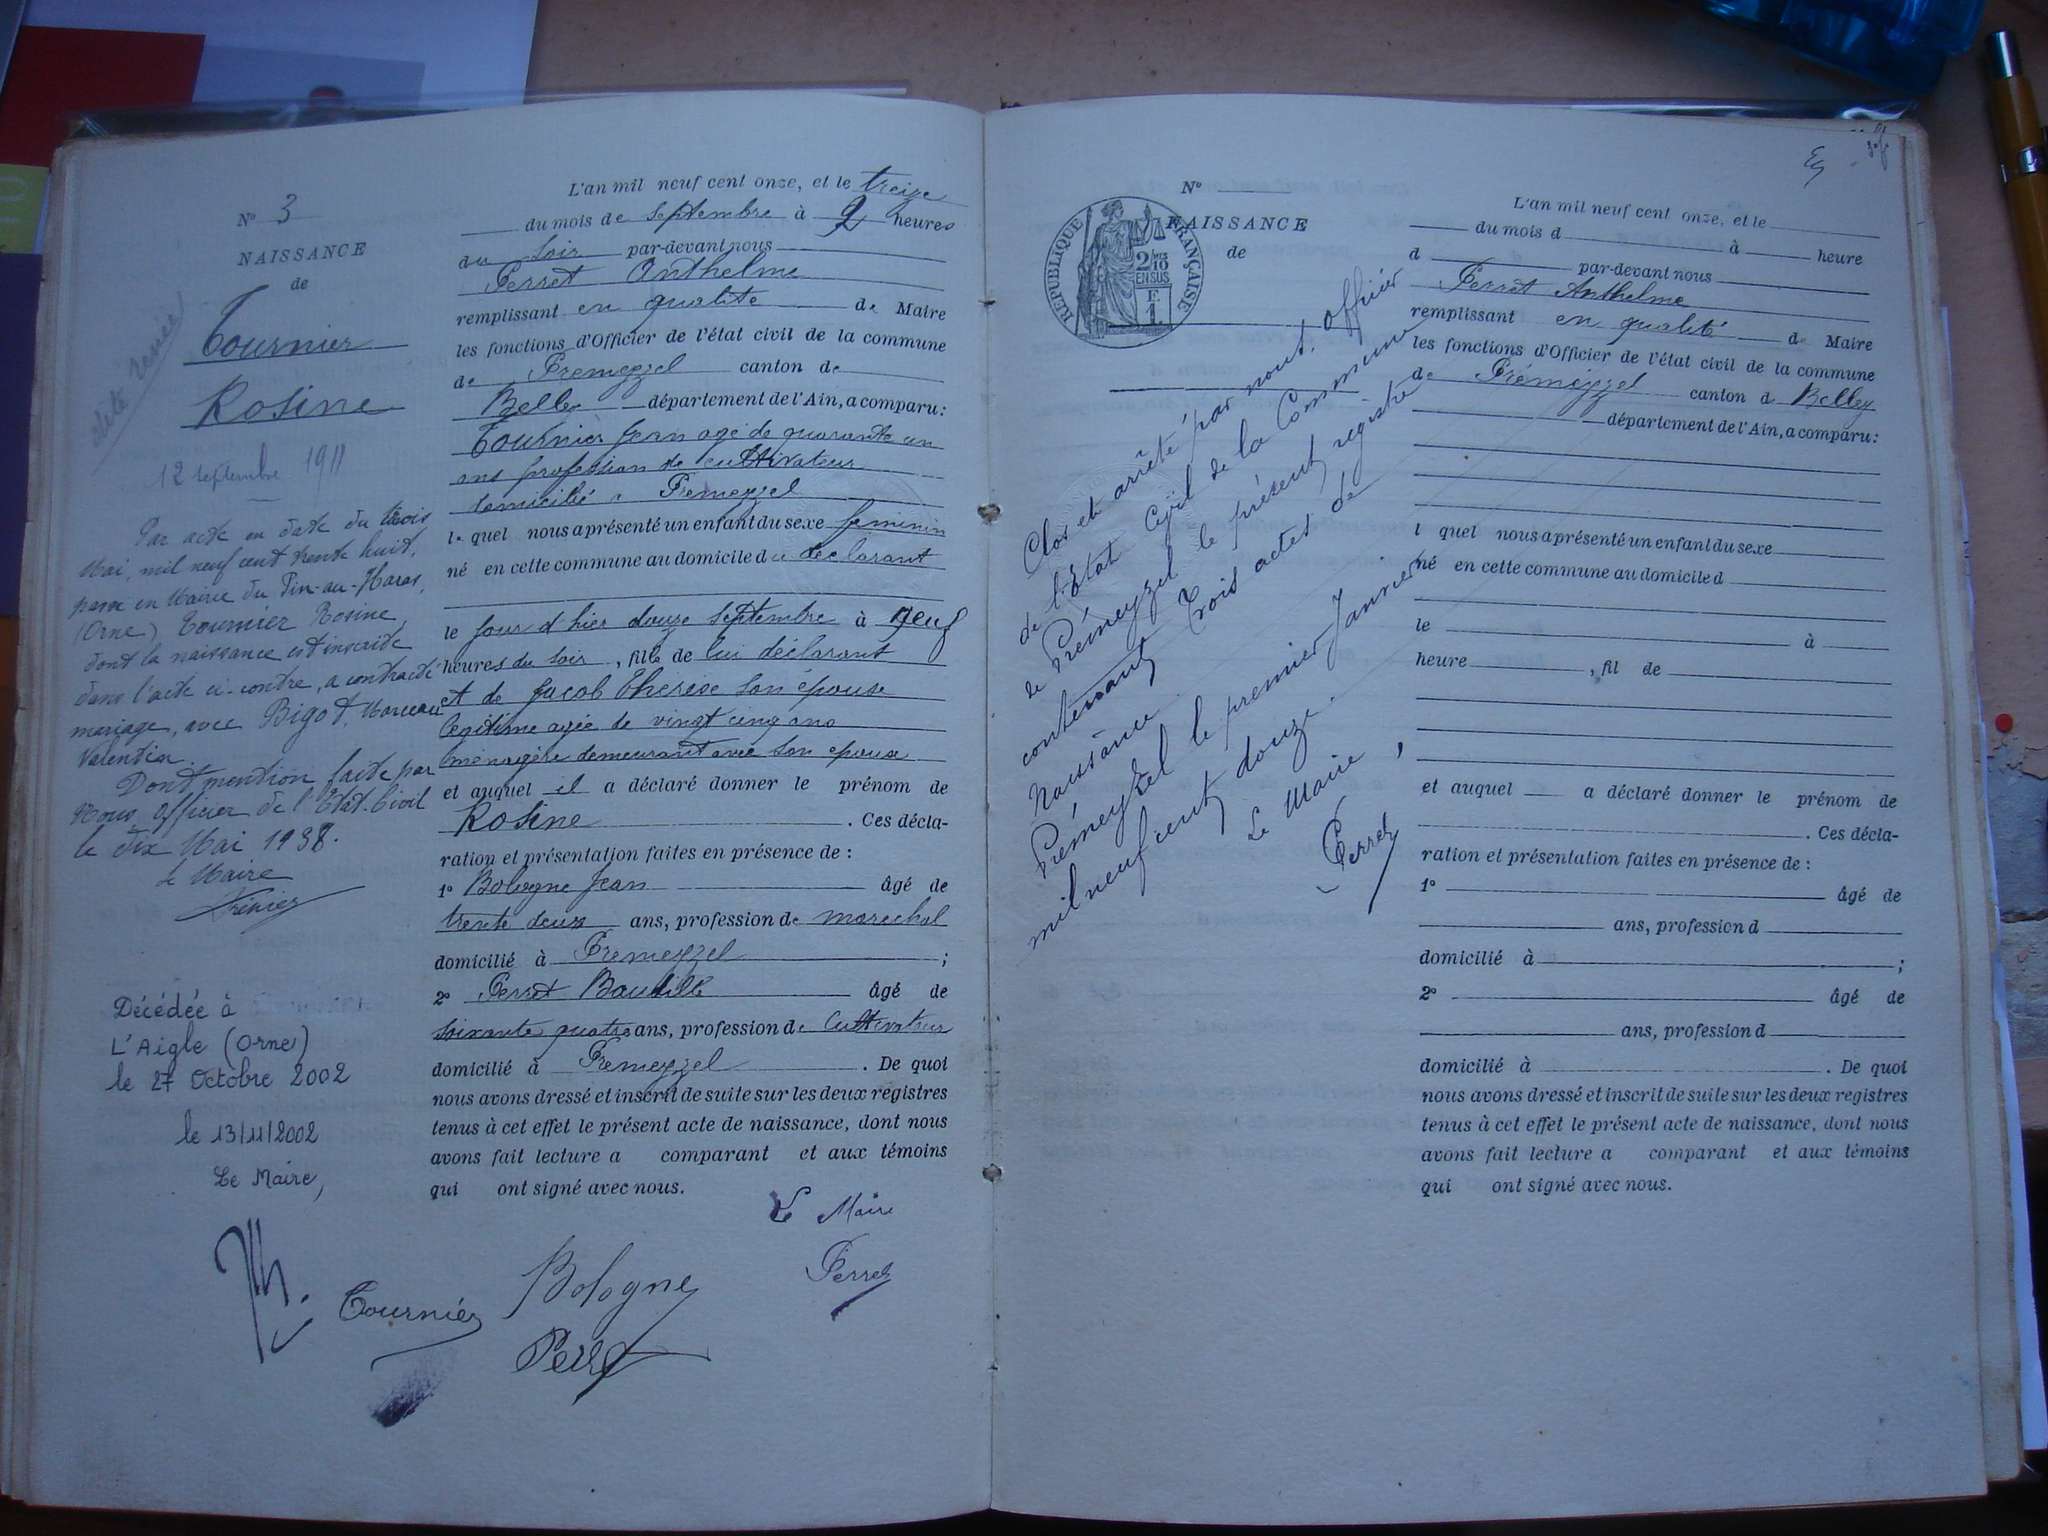 N° 3
NAISSANCE
de
Tournier
Rosine
dite Renée
12 septembre 1911
Par acte en date du trois
Mai, mil neuf cent trente huit,
passé en Mairie du Pin-au-Haras,
(Orne) Tournier Rosine,
dont la naissance est inscrite
dans l'acte ci-contre, a contracté
mariage, avec Bigot, Marceau
Valentin.
Dont mention faite par
Nous Officier de l'Etat-Civil
le dix Mai 1938.
le Maire
Décédée à
L'Aigle (Orne)
le 27 Octobre 2002
le 13/11/2002
Le Maire,
L'an mil neuf cent onze, et le treize
du mois de septembre à 2 heures
du soir par-devant nous
Perret Anthelme
remplissant en qualité de Maire
les fonctions d'Officier de l'état civil de la commune
de Premeyzel canton de
Belley département de l'Ain, a comparu:
Tournier Jean agé de quarante un
ans profession de cultivateur
domicilié a Premeyzel
le quel nous a présenté un enfant du sexe feminin
né en cette commune au domicile du declarant
le jour d hier douze septembre à neuf
heures du soir, fille de lui déclarant
et de Jacob Therese son epouse
legitime agée de vingt cinq ans
menagère demeurant avec son epoux
et auquel il a déclaré donner le prénom de
Rosine. Ces décla-
ration et présentation faites en présence de :
1° Bologne Jean âgé de
trente deux ans, profession de marechal
domicilié à Premeyzel ;
2° Perret Baudille âgé de
soixante quatre ans, profession de Cultivateur
domicilié à Premeyzel. De quoi
nous avons dressé et inscrit de suite sur les deux registres
tenus à cet effet le présent acte de naissance, dont nous
avons fait lecture a comparant et aux témoins
qui ont signé avec nous.
Le Maire
Perret
Tournier
Bologne
Perret
N°
NAISSANCE
de
RÉPUBLIQUE FRANÇAISE
2/10
EN SUS
F.
1
Clos et arrêté par nous, officier
de l'Etat Civil de la Commune
de Prémeyzel le présent registre
contenant trois actes de
Naissance.
Prémeyzel le premier Janvier
mil neuf cent douze.
Le Maire,
Perret
L'an mil neuf cent onze, et le
du mois d à heure
d par-devant nous
Perret Anthelme
remplissant en qualité de Maire
les fonctions d'Officier de l'état civil de la commune
de Prémeyzel canton d Belley
département de l'Ain, a comparu:
l quel nous a présenté un enfant du sexe
né en cette commune au domicile d
le à
heure , fil de
et auquel a déclaré donner le prénom de
. Ces décla-
ration et présentation faites en présence de :
1° âgé de
ans, profession d
domicilié à ;
2° âgé de
ans, profession d
domicilié à . De quoi
nous avons dressé et inscrit de suite sur les deux registres
tenus à cet effet le présent acte de naissance, dont nous
avons fait lecture a comparant et aux témoins
qui ont signé avec nous.